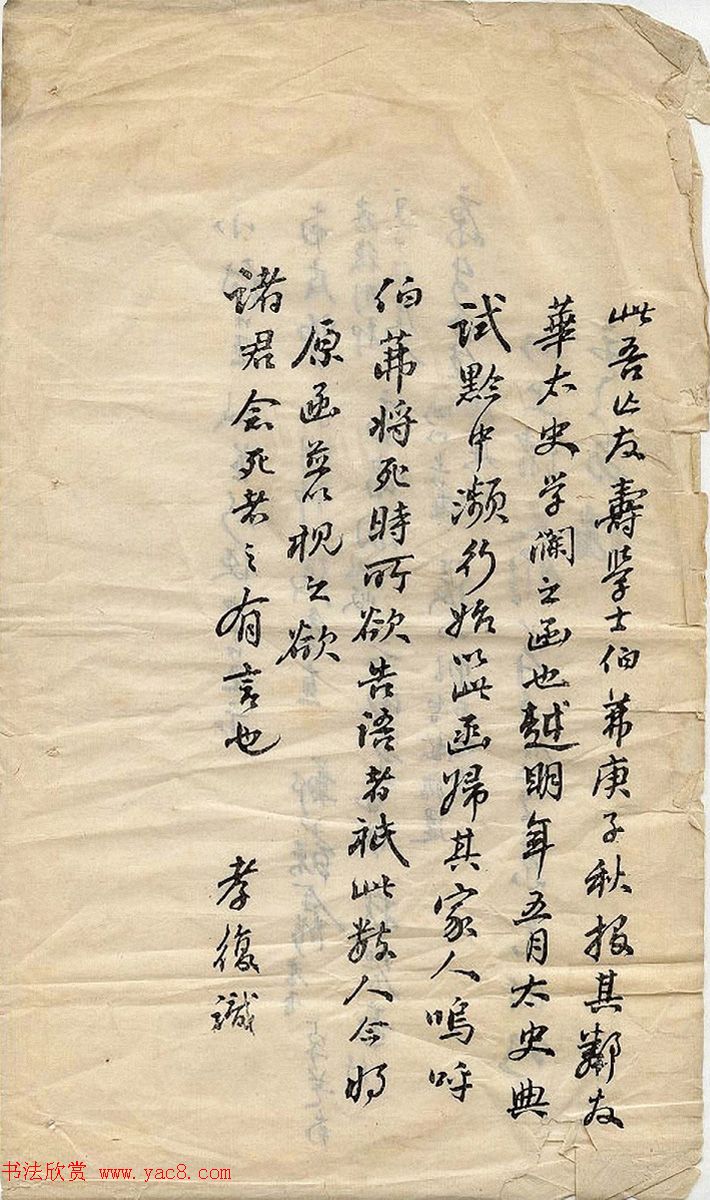 此吾亡友壽學士伯茀庚子秋报其鄰友
華太史学澜之函也越明年五月太史典
试黔中濒行始以此函歸其家人嗚呼
伯茀将死時所欲告语者祇此数人今将
原函並以枧之欲
诸君念死者之有言也
孝復識
书法欣赏 www.yac8.com